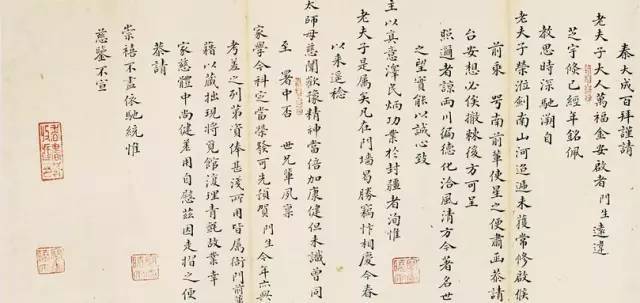 秦大成百拜謹請
老夫子大人萬福金安啟者門生遠違
芝宇倏已經年銘佩
教思時深馳溯自
老夫子榮涖劍南山河迢遞未獲常修啟候
前東 咢南前輩使星之便肅函恭請
台安想必俟撤棘後方可呈
照邇者諒兩川徧德化洽風清方今著名世
之望實能以誠心致
主以真意澤民炳功業於封疆者洵惟
老夫子是屬矣凡在門墻曷勝竊忭相慶今春
以來遥稔
太師母慈闈歡豫精神當倍加康健但未識曾同
至 署中否 世兄輩夙稟
家學今科定當榮發可先預賀門生今年六與
考差之列第資俸甚淺所用皆屬衙門前輩
籍以藏拙現將覓館復理青氈故業幸
家慈體中尚健差用自慰茲因走摺之便
恭請
崇禧不盡依馳統惟
慈鑒不宣